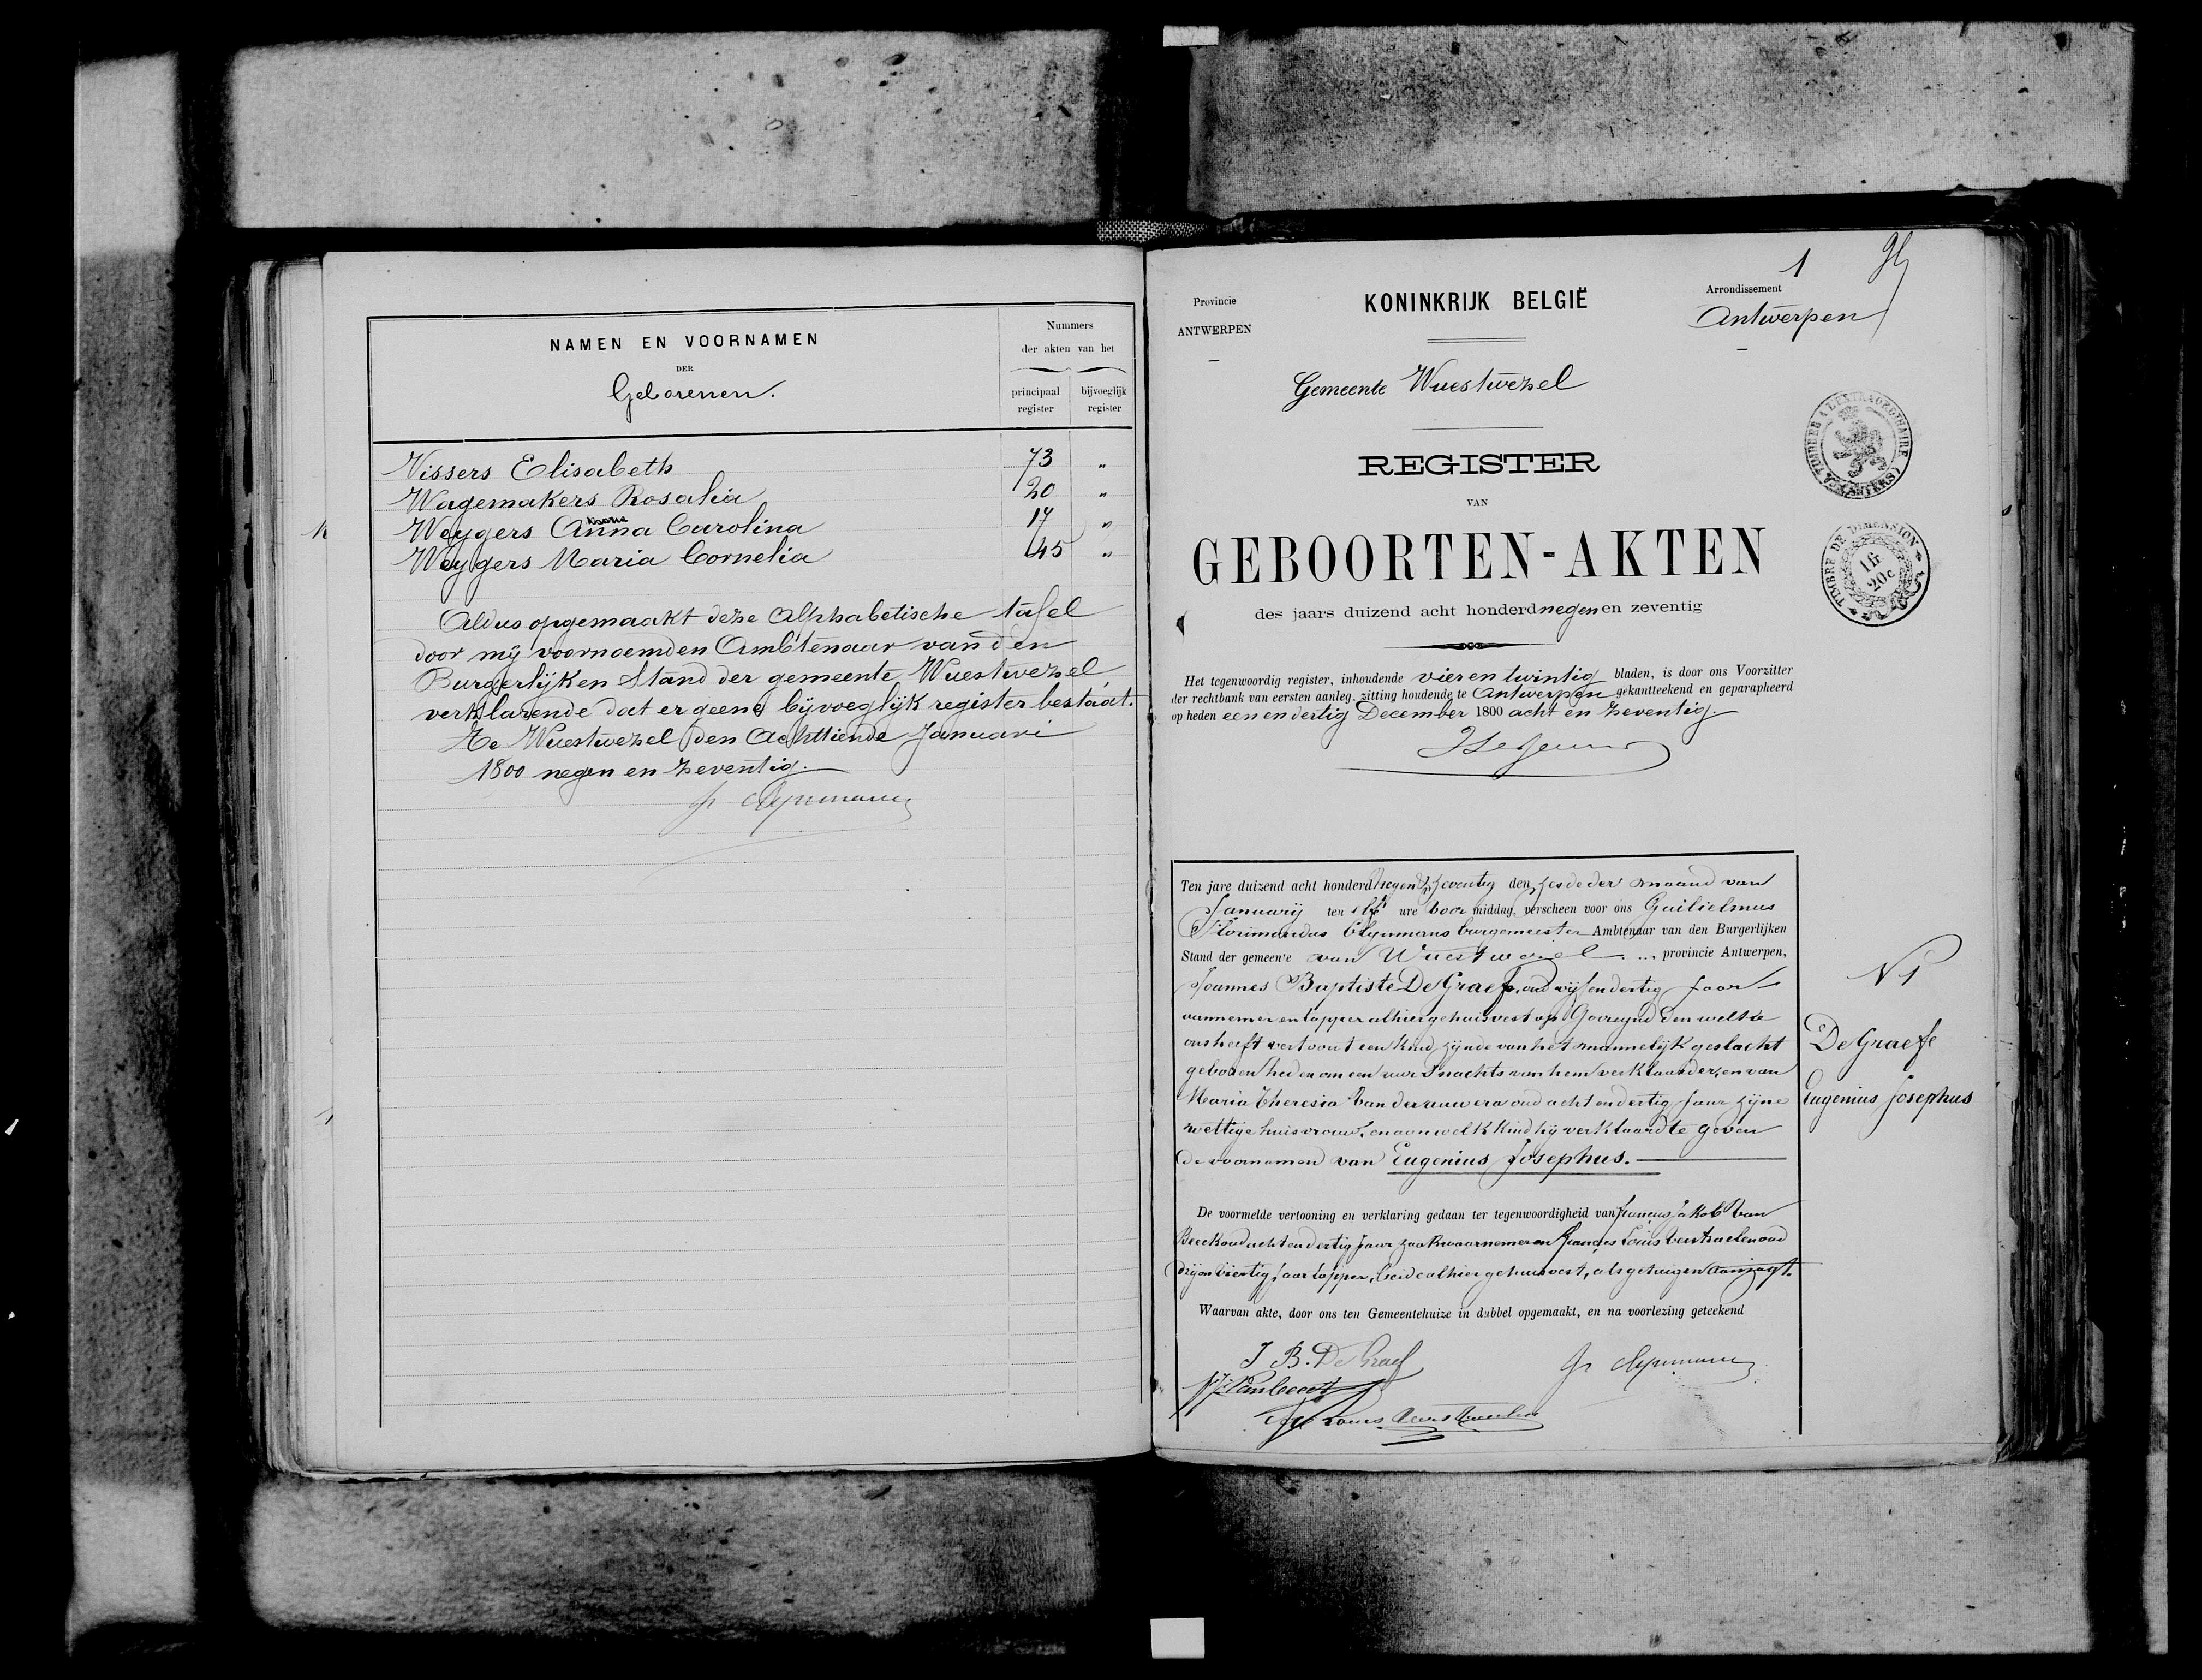 NAMEN EN VOORNAMEN
DER
Geborenen.
Nummers
der akten van het
principaal register
bijvoeglijk register
Vissers Elisabeth 73 "
Wagemakers Rosalia 20 "
Weygers Anna Carolina 17 "
Weygers Maria Cornelia 45 "
Aldus opgemaakt deze Alphabetische tafel
door mij voornoemden Ambtenaar van den
Burgerlijken Stand der gemeente Wuestwezel,
verklarende dat er geene bijvoeglijk register bestaat.
Te Wuestwezel den Achttiende Januari
1800 negen en zeventig.
1
Provincie
ANTWERPEN
KONINKRIJK BELGIË
Arrondissement
Antwerpen
Gemeente Wuestwezel
REGISTER
VAN
GEBOORTEN-AKTEN
des jaars duizend acht honderd negen en zeventig
TIMBRE DE DIMENSION
1 fr
20c
Het tegenwoordig register, inhoudende vier en twintig bladen, is door ons Voorzitter
der rechtbank van eersten aanleg, zitting houdende te Antwerpen gekantteekend en geparapheerd
op heden een en dertig December 1800 acht en zeventig.
Ten jare duizend acht honderd negen & zeventig den zesde der maand van
Januarij ten elf ure voor middag, verscheen voor ons Guilielmus
Florimondus Clynmans burgemeester Ambtenaar van den Burgerlijken
Stand der gemeente van Wuestwezel, provincie Antwerpen,
Joannes Baptiste De Graef, oud vijf en dertig jaar
aannemer en tapper alhier gehuisvest op Gooreynd den welke
ons heeft vertoont een kind, zijnde van het mannelijk geslacht
geboren heden om een uur 's nachts van hem verklaarder, en van
Maria Theresia Van der auwera oud acht en dertig jaar zijne
wettige huisvrouw, en aan welk kind hij verklaard te geven
de voornamen van Eugenius Josephus.
De voormelde vertooning en verklaring gedaan ter tegenwoordigheid van françus Jakob Van
Beeck oud acht en dertig jaar zaakwaarnemer en françus Louis Verstraelen oud
drij en veertig jaar tapper, beide alhier gehuisvest, als getuigen aanzogt.
Waarvan akte, door ons ten Gemeentehuize in dubbel opgemaakt, en na voorlezing geteekend
J. B. De Graef
N 1
De Graefe
Eugenius Josephus